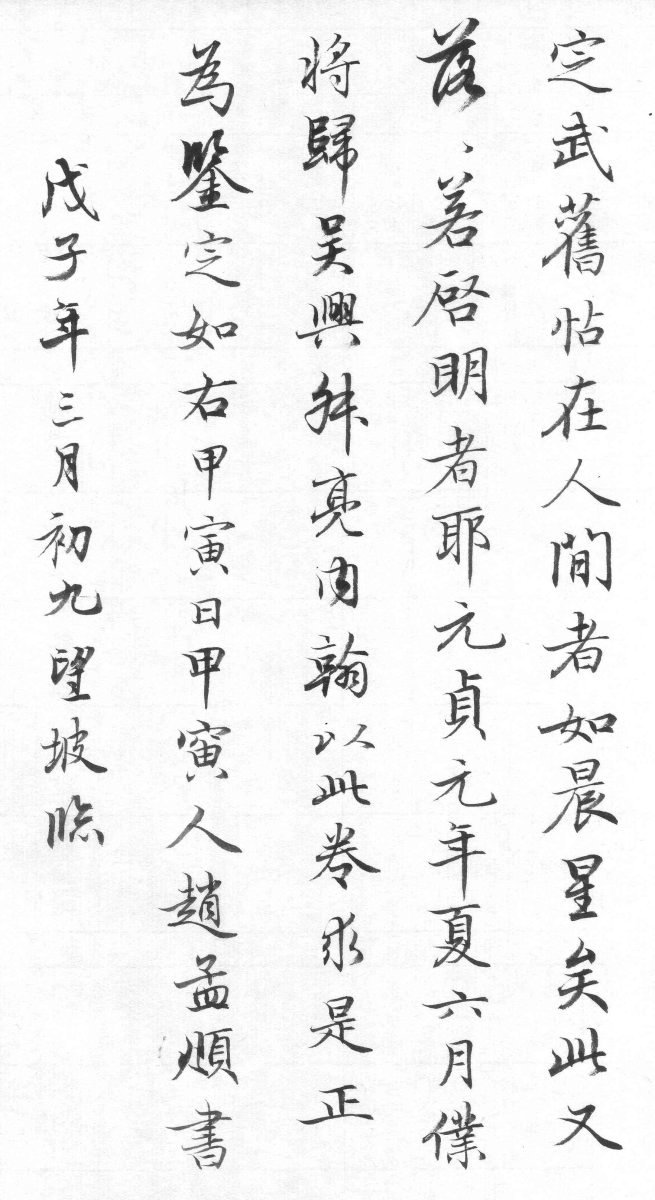 定武舊帖在人間者如晨星矣此又
落、若啓明者耶元貞元年夏六月僕
將歸吳興舛亮内翰以此卷求是正
為鑒定如右甲寅日甲寅人趙孟頫書
戊子年三月初九望坡臨